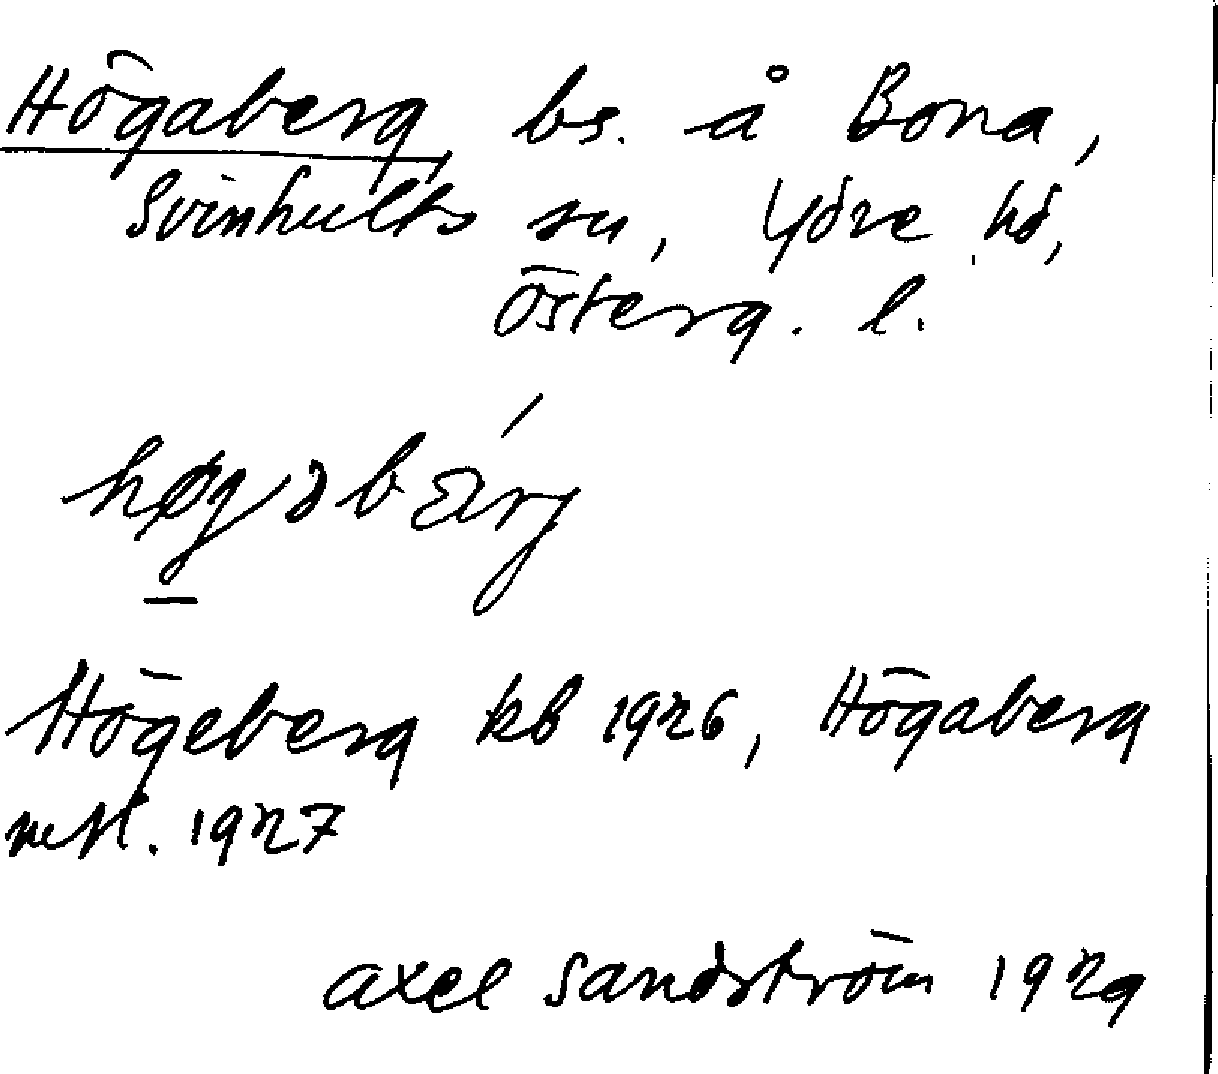 Högaberg bs. å Bona,
Svinhults sn, Ydre hd,
Österg. l.
Högeberg kb 1926, Högaberg
1927
Axel Sandström 1929